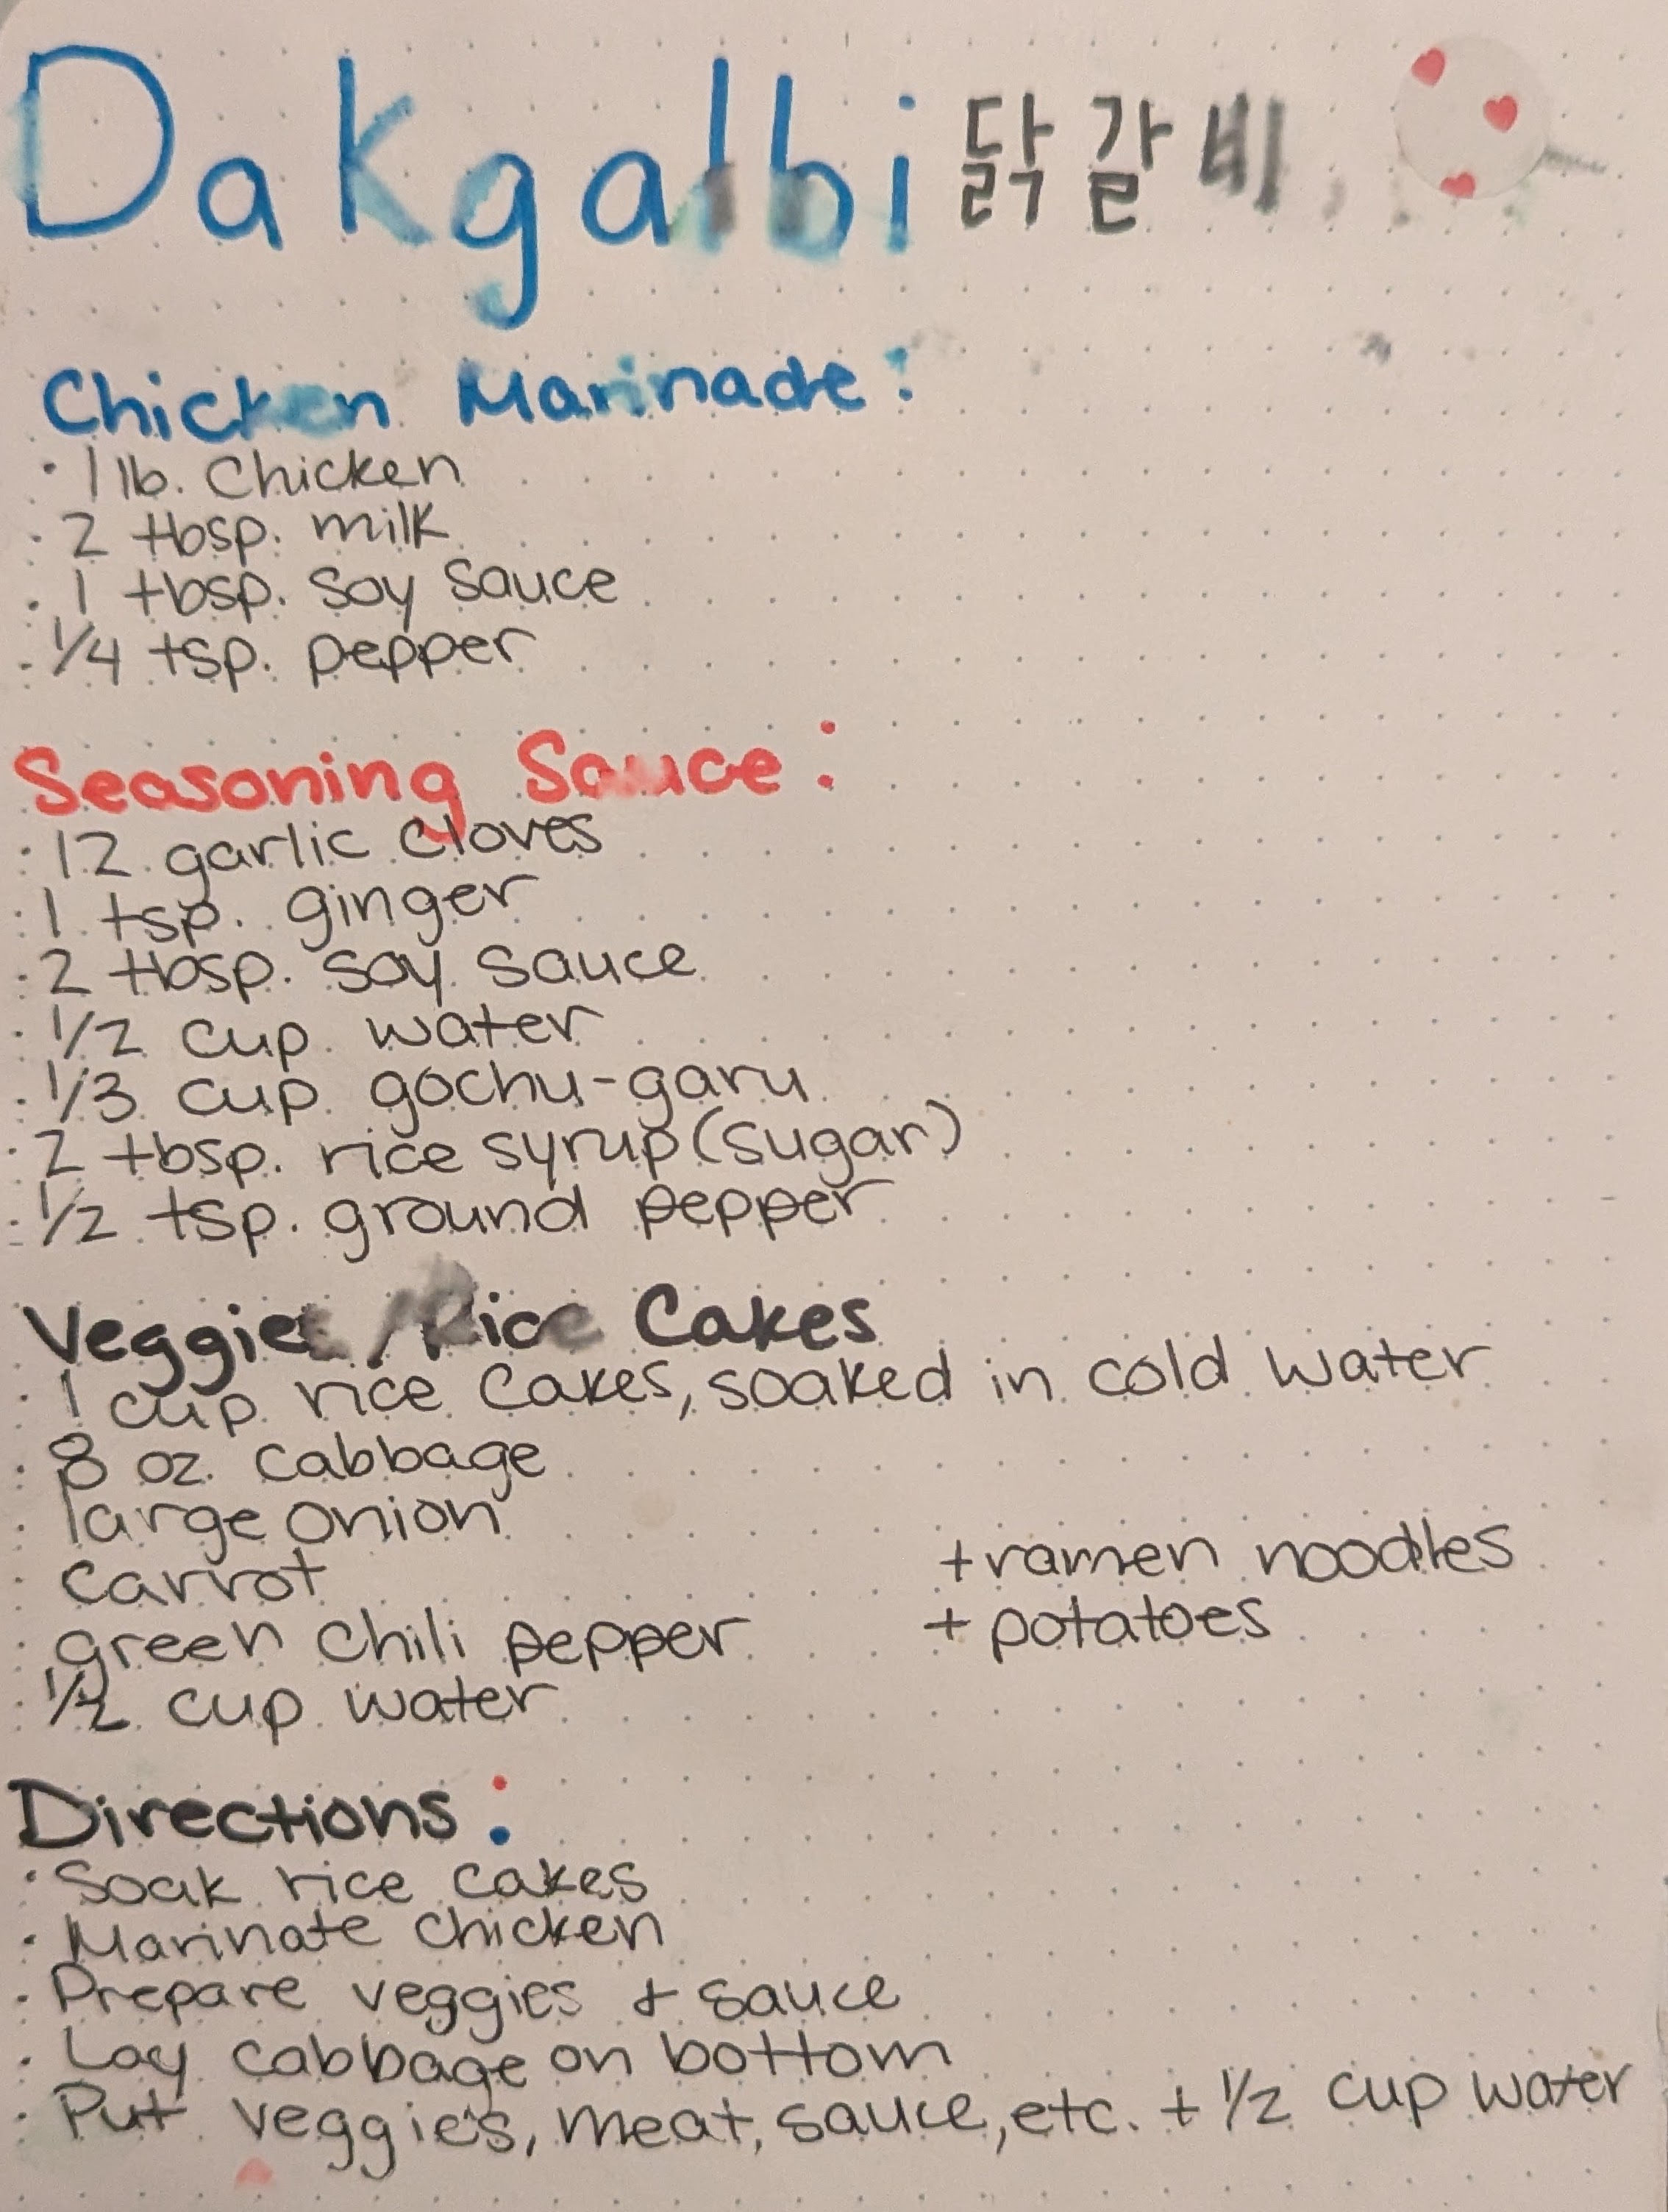 Dakgalbi 닭갈비
Chicken Marinade:
· 1 lb. Chicken
· 2 tbsp. milk
· 1 tbsp. soy sauce
· 1/4 tsp. pepper
Seasoning Sauce:
· 12 garlic cloves
· 1 tsp. ginger
· 2 tbsp. soy sauce
· 1/2 cup water
· 1/3 cup gochu-garu
· 2 tbsp. rice syrup (sugar)
· 1/2 tsp. ground pepper
Veggies/Rice Cakes
· 1 cup rice cakes, soaked in cold water
· 8 oz. cabbage
· large onion
· carrot
+ ramen noodles
· green chili pepper
+ potatoes
· 1/2 cup water
Directions:
· Soak rice cakes
· Marinate chicken
· Prepare veggies + sauce
· Lay cabbage on bottom
· Put veggies, meat, sauce, etc. + 1/2 cup water